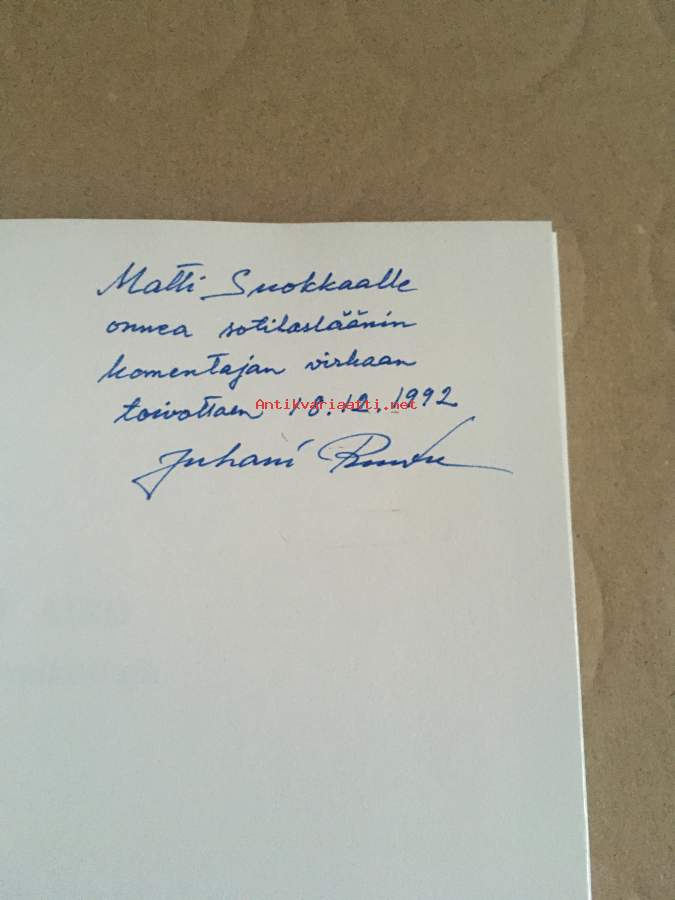 Matti Suokkaalle
onnea sotilasläänin
komentajan virkaan
toivottaen 18.12.1992
Antikvariaatti.net
Juhani